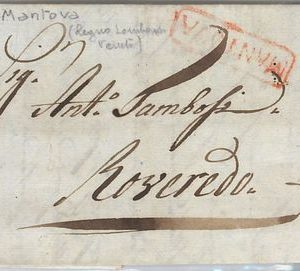 Mantova
(Regno Lombardo
Veneto)
Sig.
Ant.o Tambosi
Roveredo.